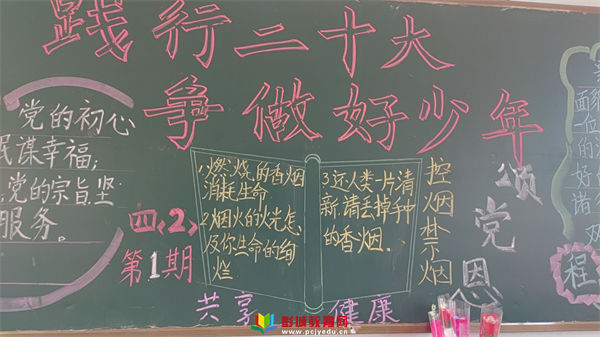 践行二十大
争做好少年
党的初心
民谋幸福;
党的宗旨坚
服务。
四〈2〉
第1期
1.燃烧的香烟
消耗生命
2.烟火的火光怎
及你生命的绚
烂
3.还人类一片清
新,请丢掉手中
的香烟.
控烟禁烟
颂党恩
共享 健康
面貌
一位
的
好的
诸
双
程
彭城教育网
www.pcjyedu.cn